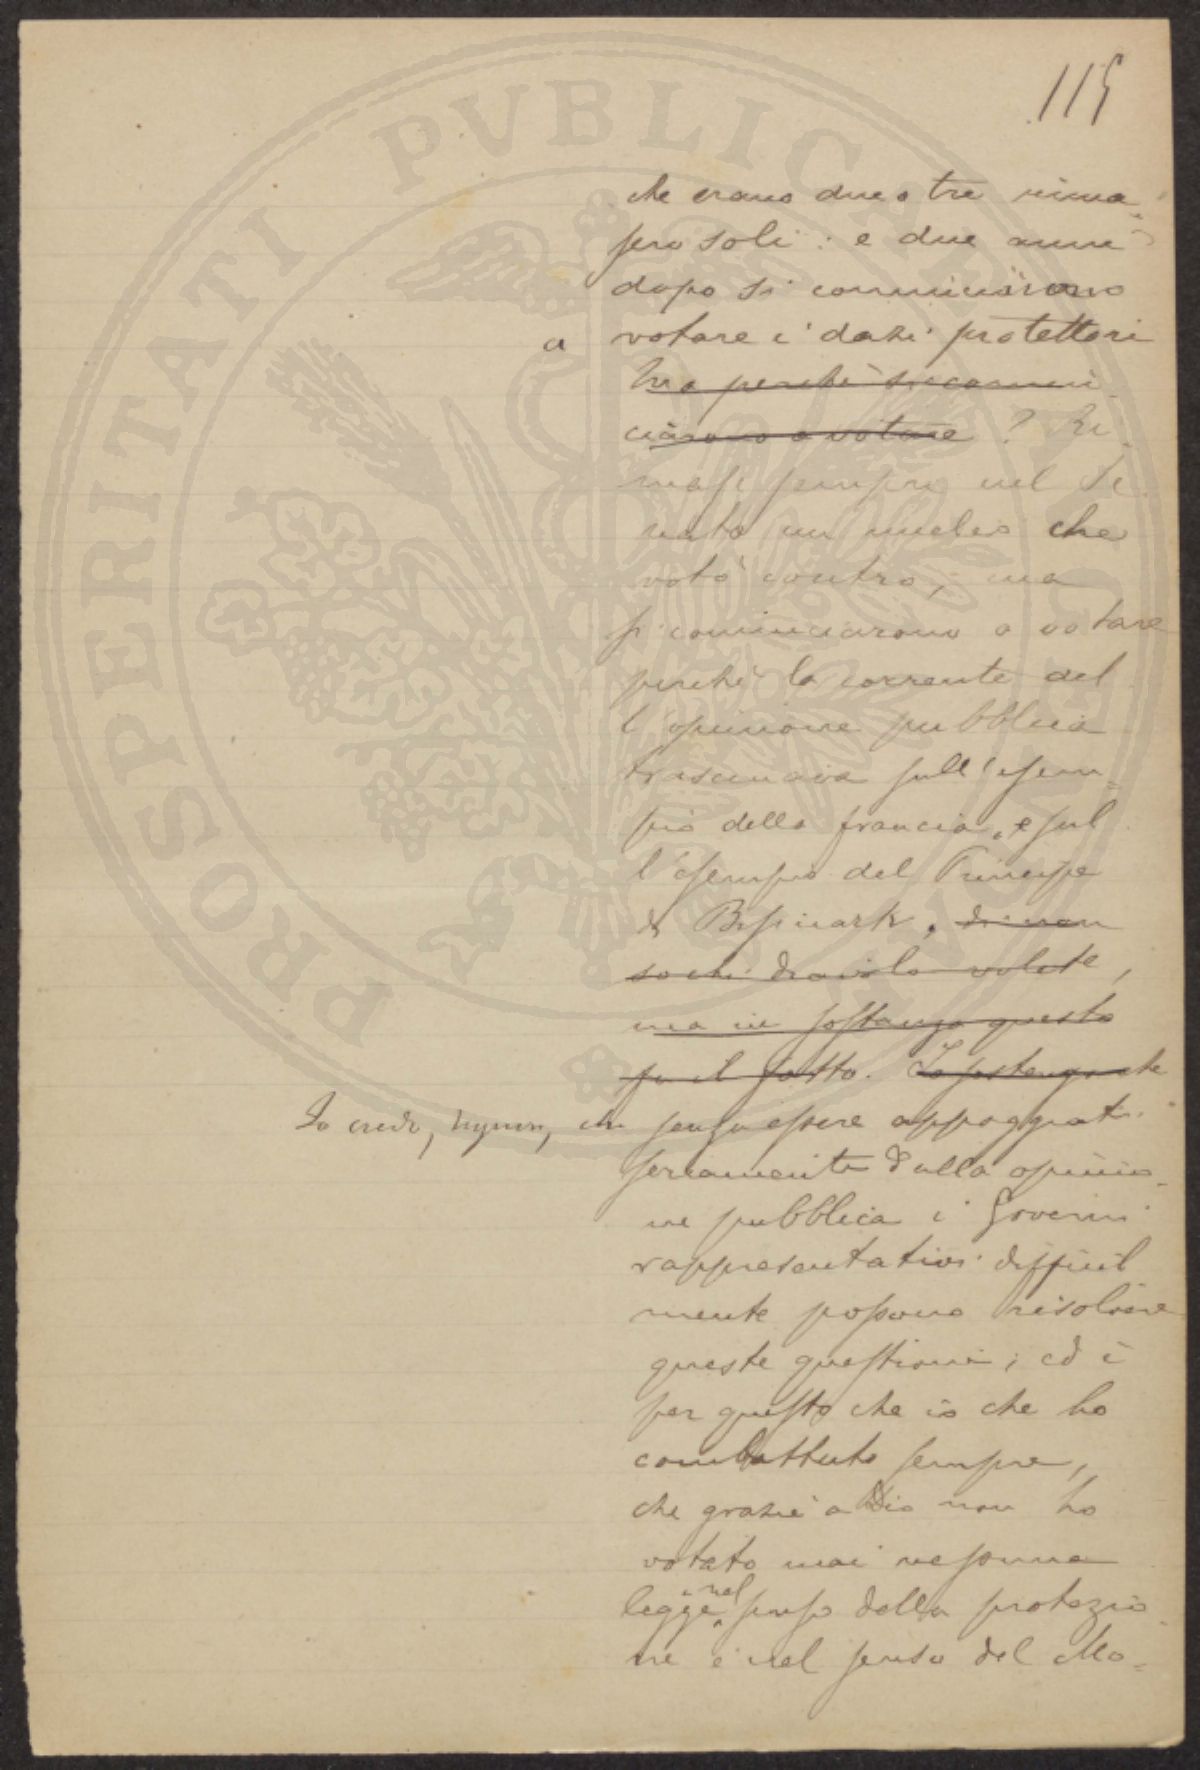 115
che erano due o tre rima-
sero soli: e due anni
dopo si comminciarono
a votare i dazi protettori
Ma perchè si commin
ciarono a votare? Ri-
mase sempre nel Se
nato un nucleo che
votò contro, ma
si cominciarono a votare
perchè la corrente del
l'opinione pubblica
trascinava sull'esem-
pio della francia, e sul
l'esempio del Principe
di Bismark, di non
so che diavolo volete,
ma in sostanza questo
fu il fatto. Io sostengo che
Io credo, signori, che senza essere appoggiati
seriamente dalla opinio-
ne pubblica i Governi
rappresentativi difficil
mente possono risolvere
queste questioni; ed è
per questo che io che ho
combattuto sempre,
che grazie a Dio non ho
votato mai nessuna
legge nel senso della protezio-
ne e nel senso del Mo-
PROSPERITATI PVBLICAE